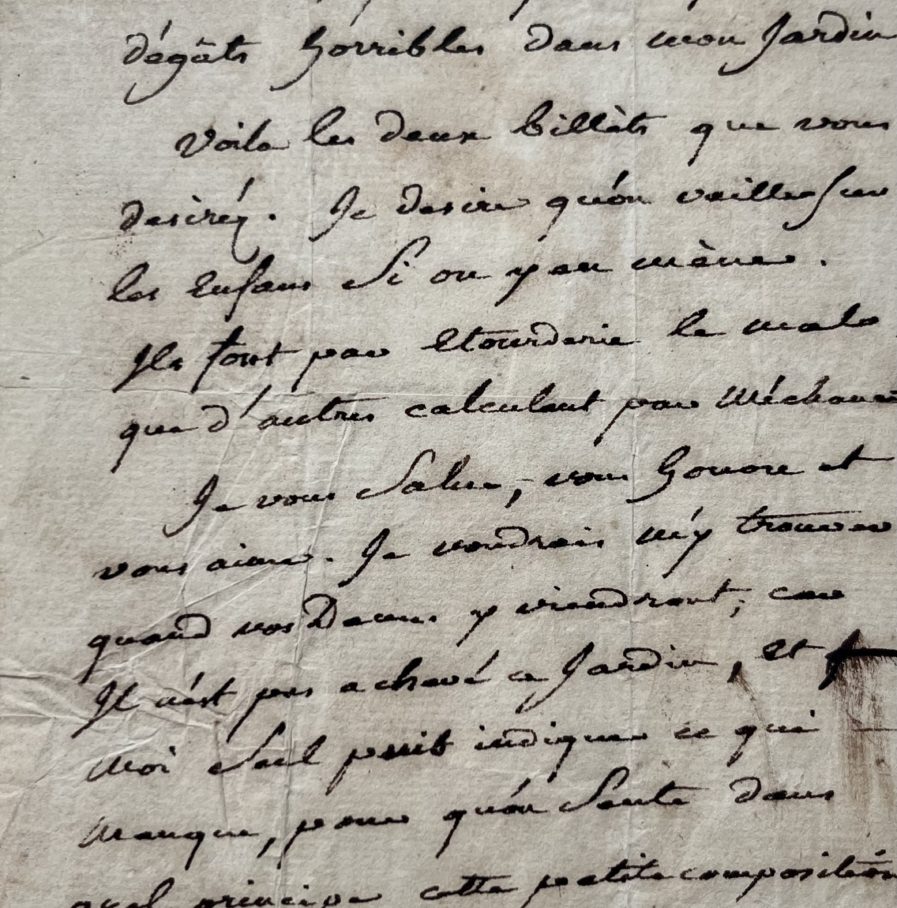 dégâts horribles dans mon Jardin
Voila les deux billèts que vous
desiréz. Je desire qu'on veille sur
les Enfans Si on y en mène.
Ils font par Etourderie le mal
que d'autres calculent par Méchance
Je vous Salue, vous honore et
vous aime. Je voudrais m'y trouver
quand vos Dames y viendront; car
Il n'est pas achevé ce Jardin, et
moi Seul puis indiquer ce qui
manque, pour qu'on Sente dans
quel principe cette petite composition